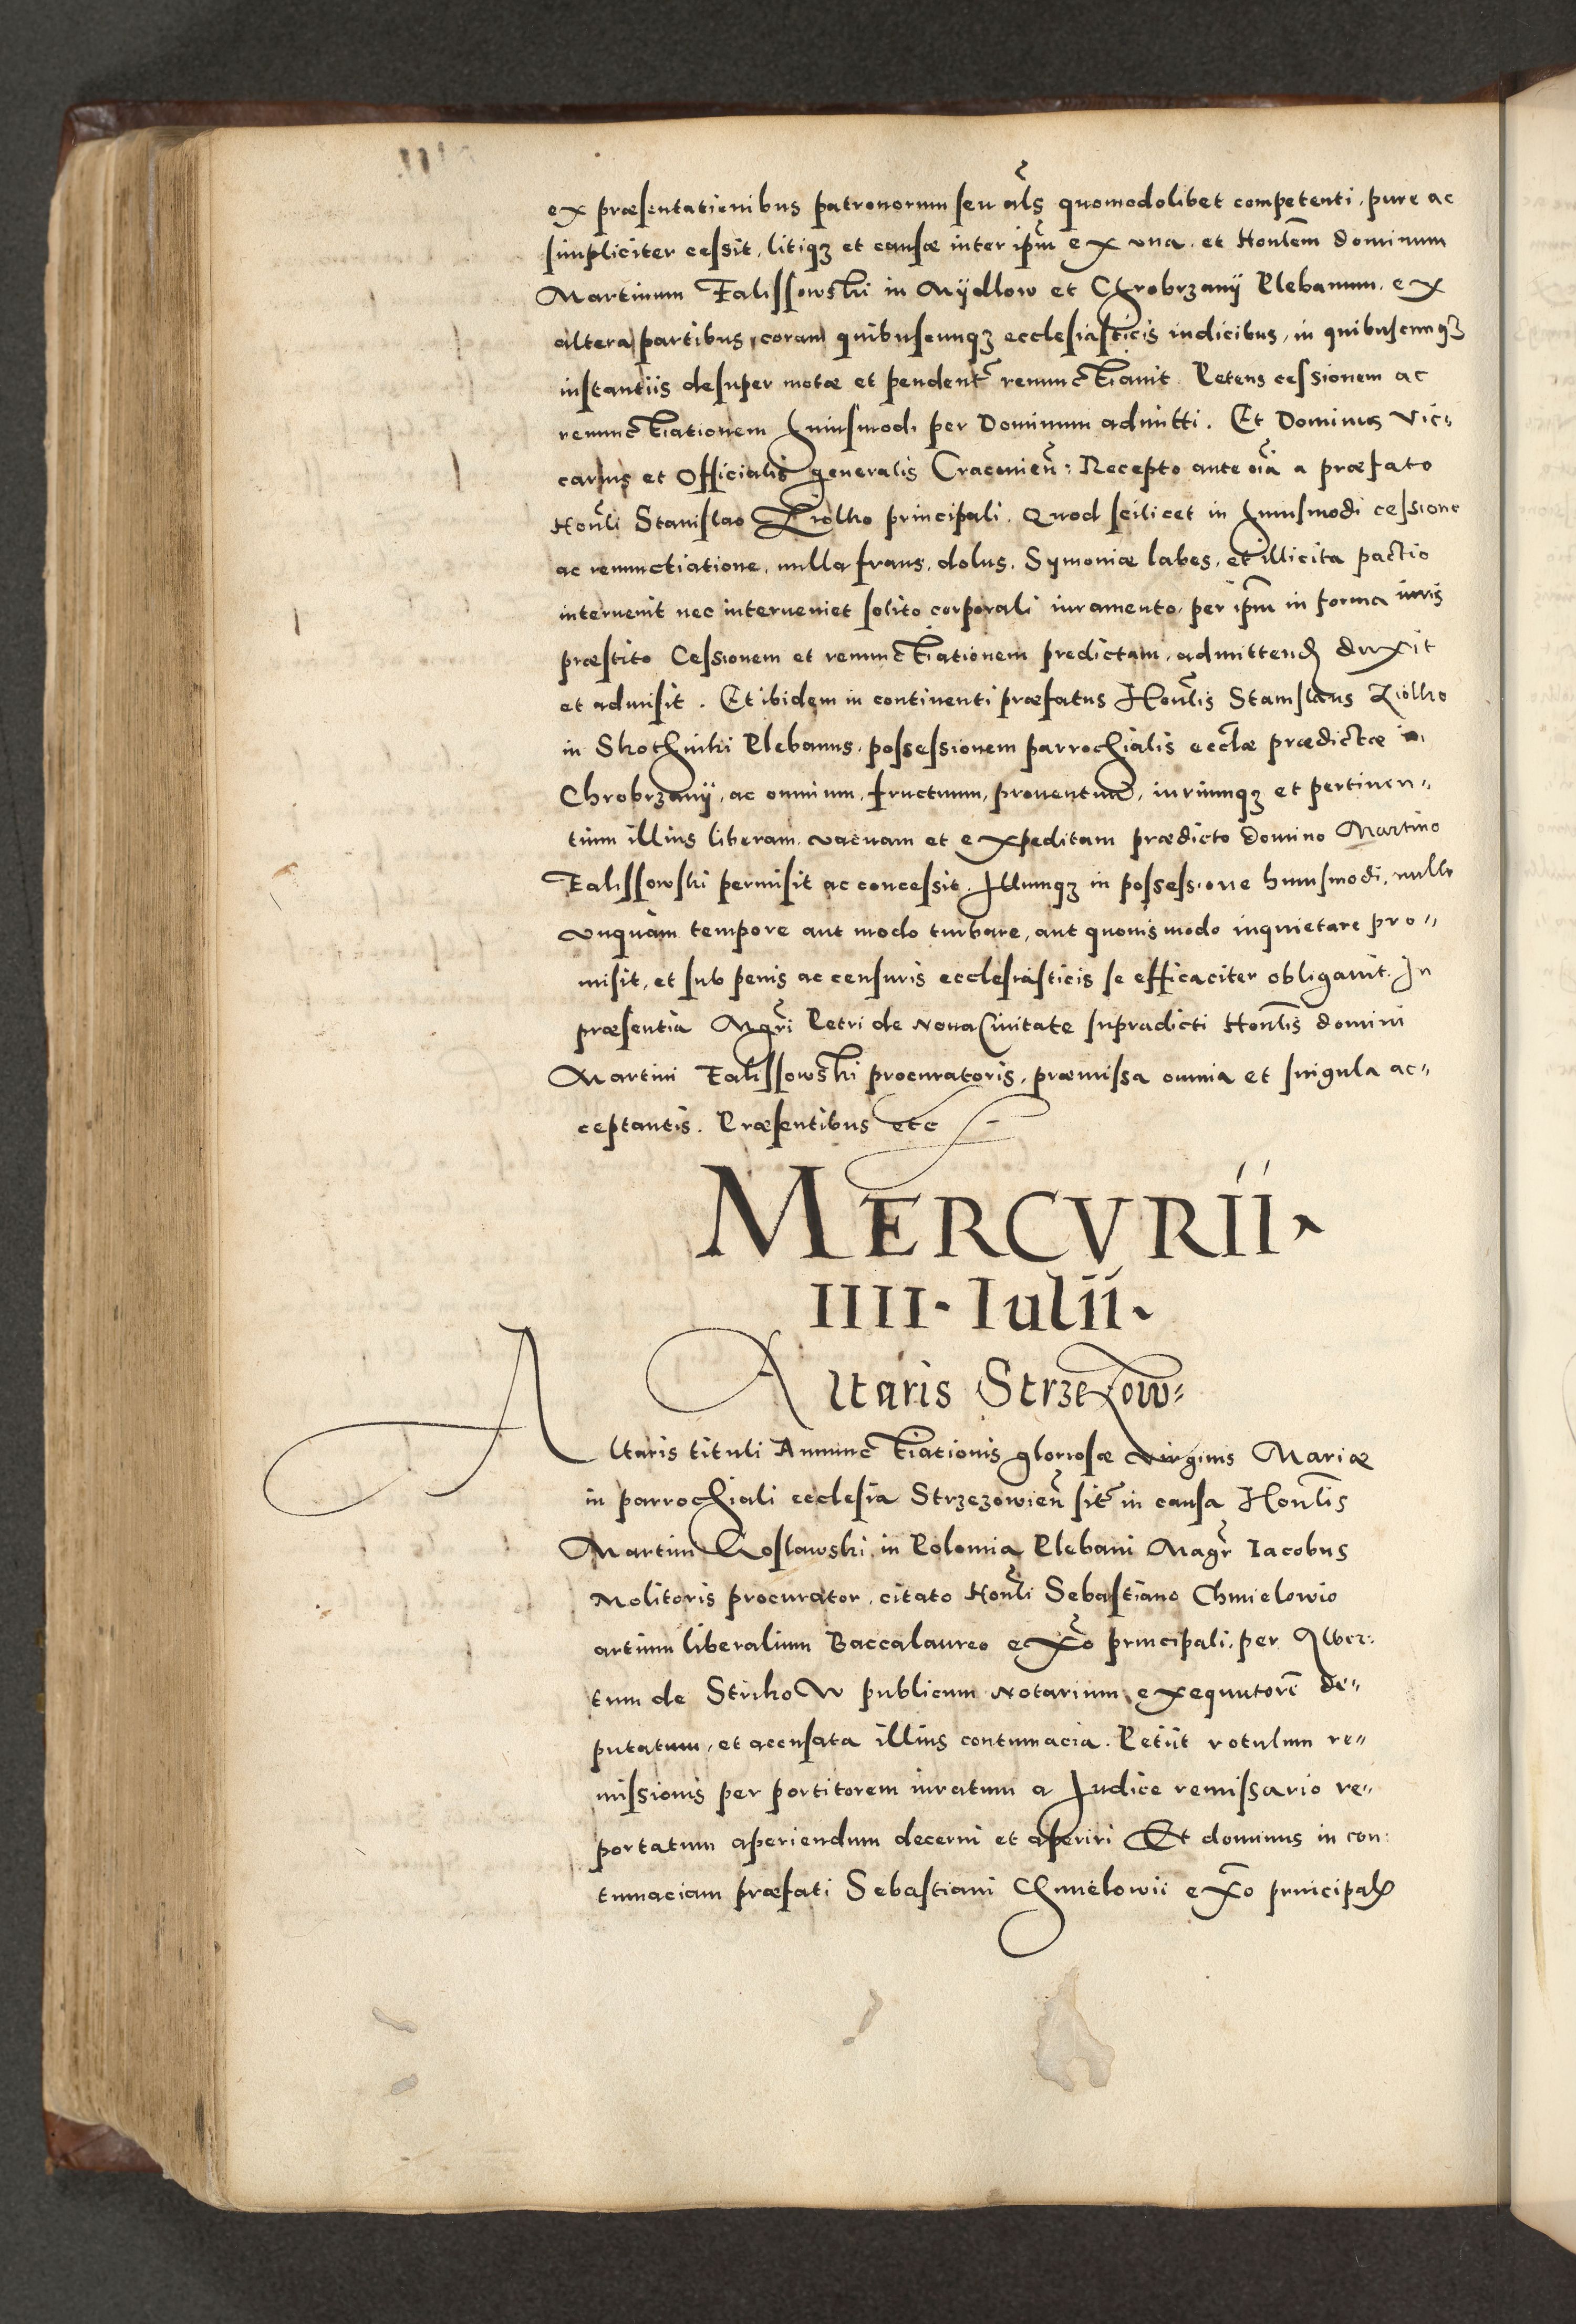 ex præsentationibus patronorum seu al̃s quomodolibet competenti, pure ac
simpliciter cessit, litiqȝ et causæ inter ip̃m ex vna, et Honlem̃ dominum
Martinum Falissowski in Mÿdlow et Chrobrzanÿ Plebanum, ex
altera partibus, coram quibuscunqȝ ecclesiasticis iudicibus, in quibuscunqȝ
instantiis desuper motæ et pendent̃ renunctiauit. Petens cessionem ac
renunctiationem huiusmodi per Dominum admitti. Et Dominus Vic⸗
carius et Officialis generalis Cracouień: Recepto ante oĩa a præfato
Hoñli Stanislao Ziolko principali. Quod scilicet in huiusmodi cessione
ac renunctiatione, nulla fraus, dolus, Symoniæ labes, et illicita pactio
interuenit nec interueniet solito corporali iuramento, per ip̃m in forma iuris
præstito Cessionem et renunctiationem predictam, admittend̃ duxit
et admisit. Et ibidem in continenti præfatus Hoñlis Stanislaus Ziolko
in Skothniki Plebanus, possessionem parrochialis eccl̃æ prædictæ in
Chrobrzanÿ, ac omnium, fructuum, prouentuum, iuriumqȝ et pertinen⸗
tium illius liberam, vacuam et expeditam prædicto Domino Martino
Falissowski permisit ac concessit. Illumqȝ in possessione huiusmodi, nullo
vnquam tempore aut modo turbare, aut quouis modo inquietare pro⸗
misit, et sub penis ac censuris ecclesiasticis se efficaciter obligauit. In
præsentia Magr̃i Petri de Noua Ciuitate supradicti Honl̃is domini
Martini Falissowski procuratoris, præmissa omnia et singula ac⸗
ceptantis. Præsentibus etc
MERCVRII
IIII. Iulii.
Altaris Strzezow⸗
Altaris tituli Annunctiationis gloriosæ virginis Mariæ
in parrochiali ecclesia Strzezowień sit̃ in causa Honl̃is
Martini Koslawski, in Polomia Plebani Magr̃ Iacobus
Molitoris procurator, citato Hoñli Sebastiano Chmielowio
artium liberalium Baccalaureo ex̃o principali, per Alber⸗
tum de Strikow publicum Notarium, exequutorẽ de⸗
putatum, et accusata illius contumacia. Petiit rotulum re⸗
missionis per portitorem iuratum a Judice remissario re⸗
portatum aperiendum decerni et aperiri Et dominus in con⸗
tumaciam præfati Sebastiani Chmielowii ex̃o principal̃